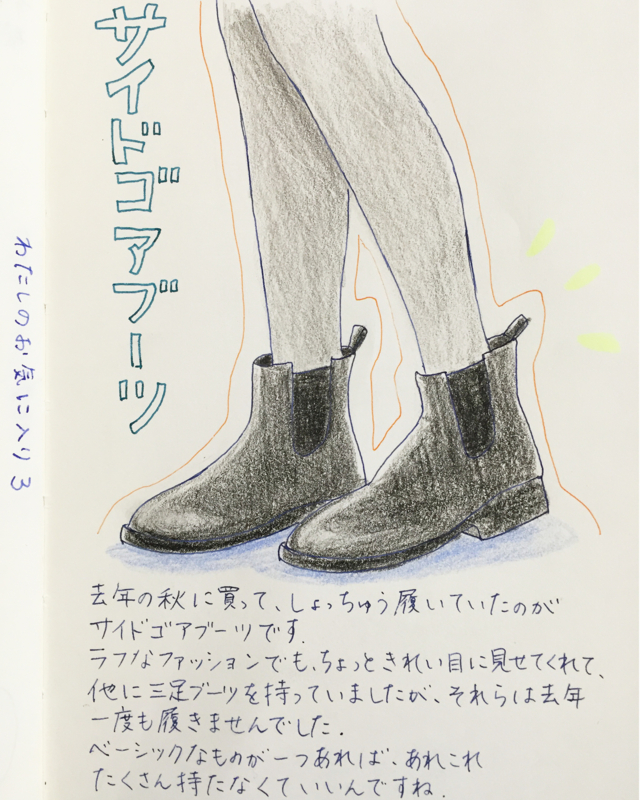 サイドゴアブーツ
わたしのお気に入り 3
去年の秋に買って、しょっちゅう履いていたのが
サイドゴアブーツです.
ラフなファッションでも、ちょっときれい目に見せてくれて、
他に三足ブーツを持っていましたが、それらは去年
一度も履きませんでした.
ベーシックなものが一つあれば、あれこれ
たくさん持たなくていいんですね.